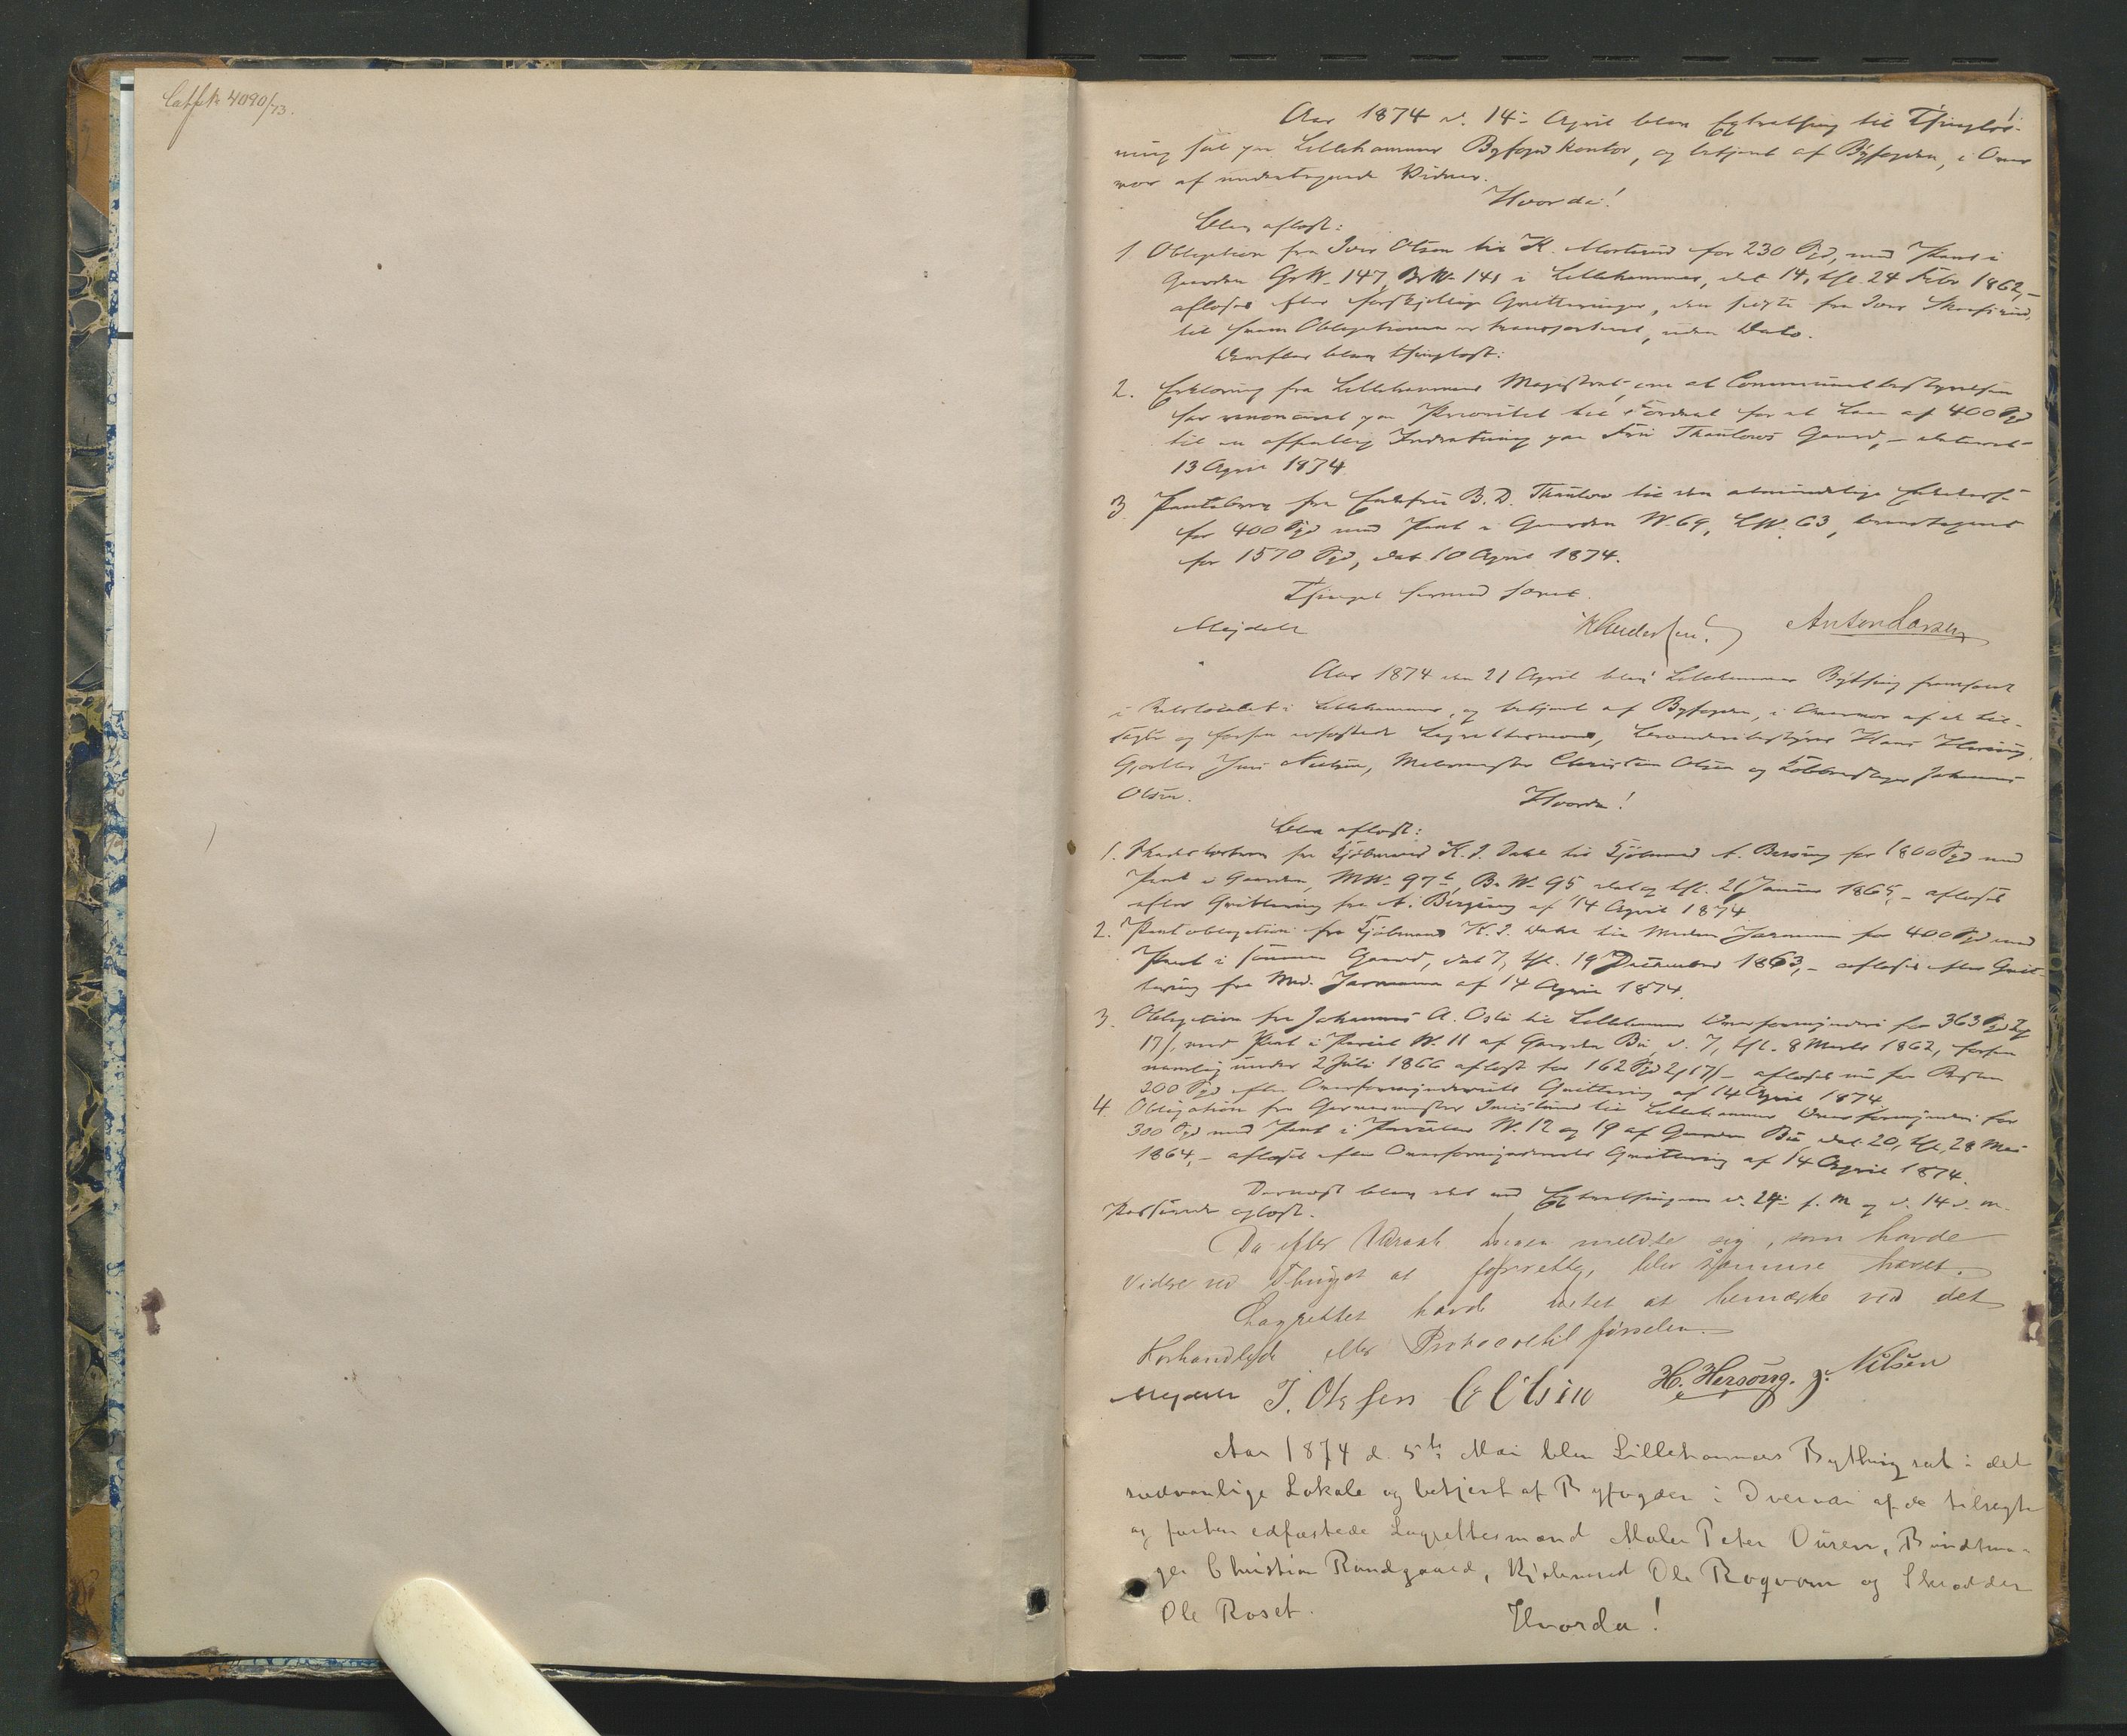 4090/73.
1
Aar 1874 d. 14de April blev Extrathing til Thinglæs-
ning sat paa Lillehammer Byfogd kontor, og betjent af Byfogden, i Over
vær af undertegnede Vidner.
Hvorda!
Blev aflæst:
1 Obligation fra Iver Olsen til K. Morterud for 230 Spd, med Pant i
Gaarden GrN. 147, BrN. 141 i Lillehammer, dat 14, thl. 24 Febr 1862,-
aflæses efter forskjellige Qvitteringer, den sidste fra Iver
til hvem Obligationen er transporteret, uden Dato.
Derefter blev thinglæst:
2. Erklæring fra Lillehammers Magistrat, om at Communebestyrelsen
har renonceret paa Prioritet til Fordeel for et Laan af 400 Spd
til en offentlig Indretning paa Fru Thaulows Gaard, - dateret
13 April 1874
3 Pantebrev fra Enkefru B. D. Thaulow til den almindelige Enkekasse
for 400 Spd med Pant i Gaarden N. 69, LN. 63, brandtaxeret
for 1570 Spd, dat 10 April 1874.
Thinget hermed hævet.
Mejdell Andersen. Anton Larsen
Aar 1874 den 21 April blev Lillehammer Bything fremholdt
i Retslocalet i Lillehammer, og betjent af Byfogden, i Overvær af de til-
sagte og forhen edfæstede Lagrettesmænd, Hans Hersoug,
Gjørtler Jens Nielsen, Malermester Christian Olsen og Kobberslager Johannes
Olsen. Hvorda!
Blev aflæst:
1. fra Kjøbmand K. J. Dahl til Kjøbmand A. Bersøug for 1800 Spd med
Pant i Gaarden, MN. 97b, B. N. 95 dat og thl. 21 Januar 1865, - aflæses
efter Qvittering fra A. Bergseng af 14 April 1874
2. Pantobligation fra Kjøbmand K. J. Dahl til Madam Jarmann for 400 Spd med
Pant i samme Gaard, dat 7, thl. 19 December 1863, - aflæses efter Qvit-
tering fra Mad. Jarmann af 14 April 1874.
3. Obligation fra Johannes A. Oslo til Lillehammer Overformynderi for 363 Spd 2
17/, med Pant i Parcel N. 11 af Gaarden Bø, d. 7, thl. 8 Marts 1862, forhen
nemlig under 2 Juli 1866 aflæst for 162 Spd 2/ 17/ - aflæses nu for Resten
200 Spd efter Overformynderiets Qvittering af 14 April 1874
4. Obligation fra Garvermester til Lillehammer Overformynderi for
300 Spd med Pant i Parceller N. 12 og 19 af Gaarden Bø, dat. 20, thl. 28 Mai
1864, - aflæses efter Overformynderiets Qvittering af 14 April 1874.
Dernæst blev det ved Extrathingene d. 24de f. M og d. 14 d. M.
Passerede oplæst.
Da efter Udraab Ingen meldte sig, som havde
videre ved Thinget at forrette, blev samme hævet.
Lagrettet havde intet at bemærke ved det
Forhandlede eller Protocoltilførselen.
Mejdell J. Olsen C Olsen H. Hersoug. J. Nilsen
Aar 1874 d. 5te Mai blev Lillehammer Bything sat i det
sædvanlige Lokale og betjent af Byfogden i Overvær af de tilsagte
og forhen edfæstede Lagrettesmænd Maler Peter Ouren, Bundtma-
ger Christian Rundgaard, Kjøbmand Ole Roqvam og Skrædder
Ole Roset. Hvorda!